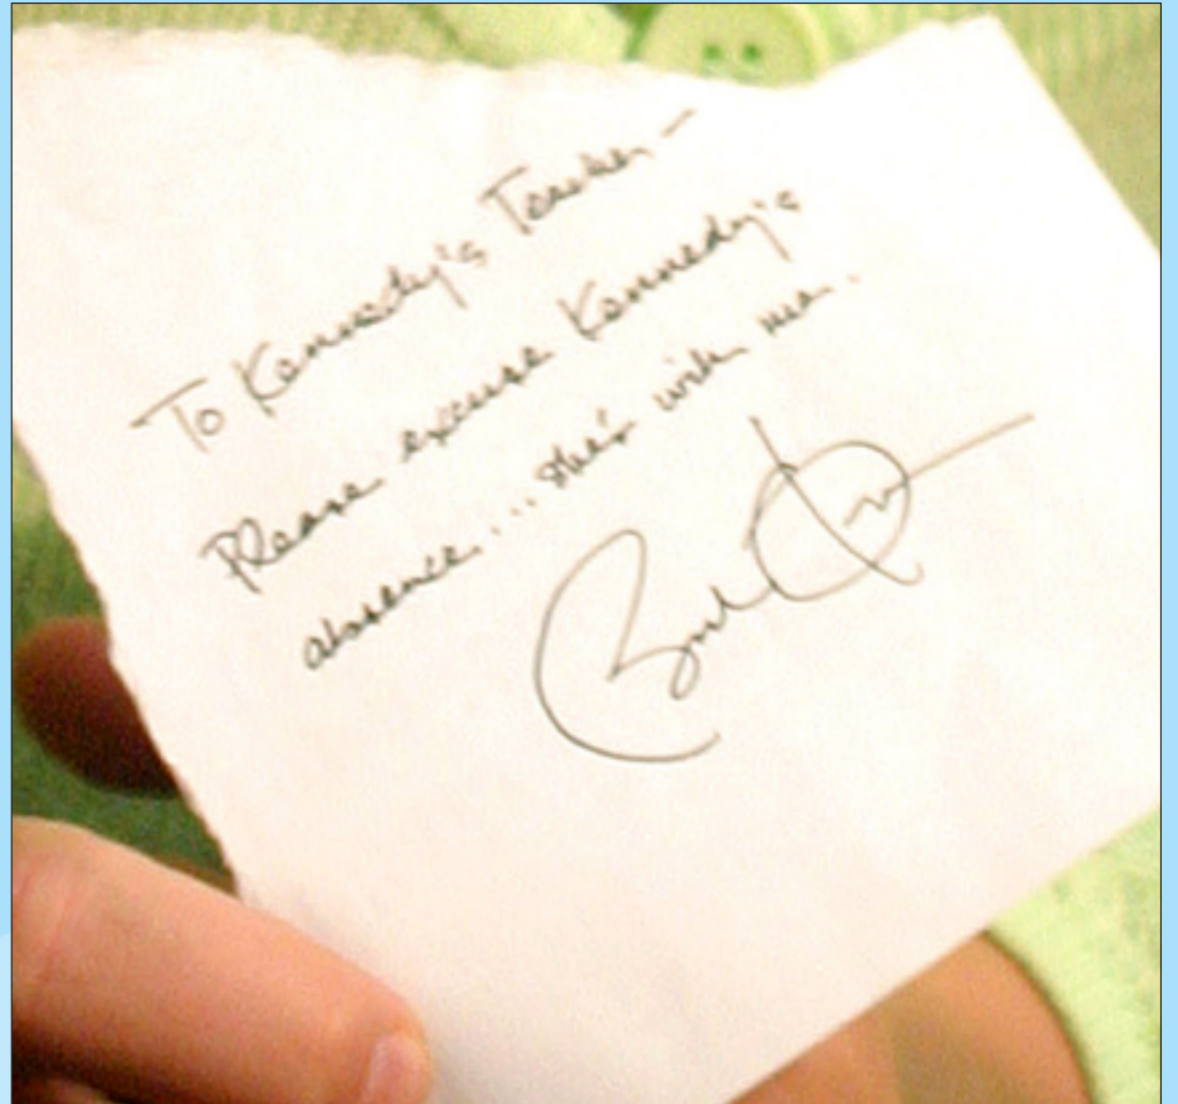 To Kennedy's Teacher —
Please excuse Kennedy's
absence... she's with me.
Barack Obama